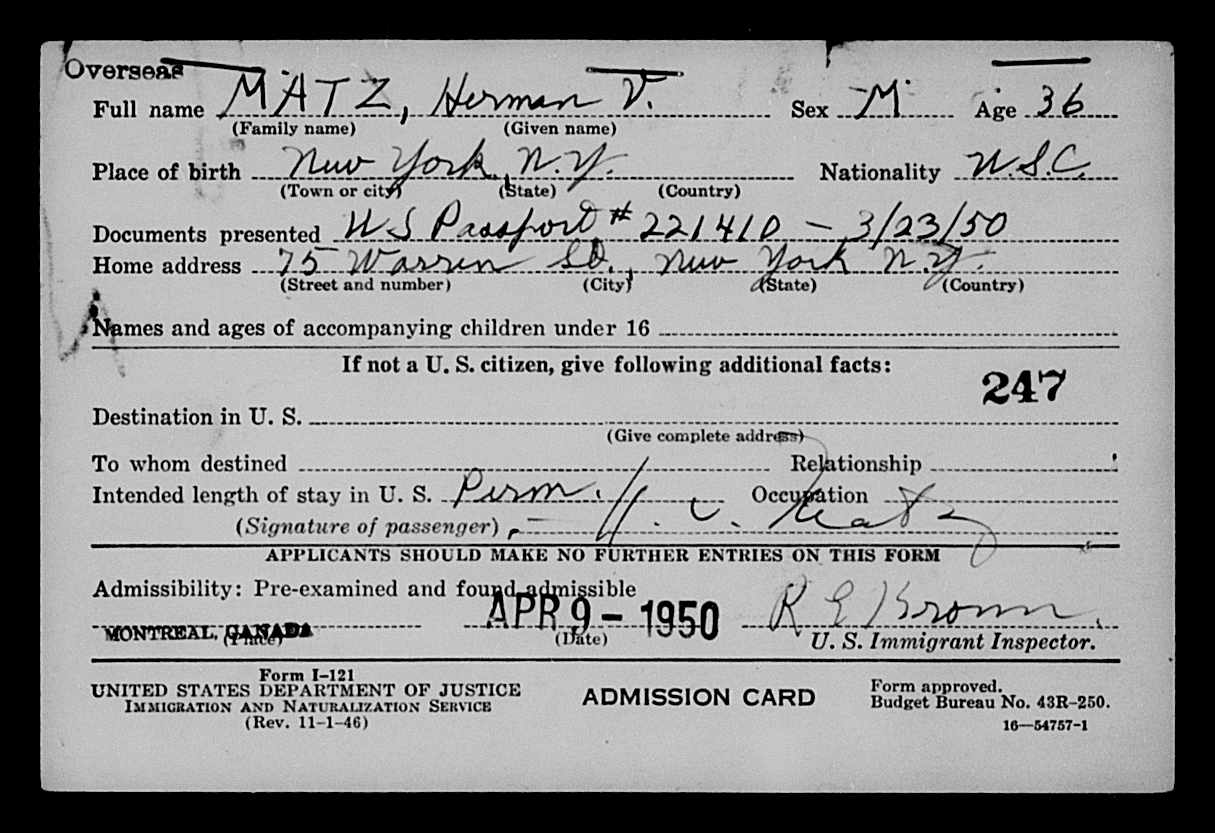 Overseas
Full name MATZ, Herman V. Sex M Age 36
(Family name) (Given name)
Place of birth New York, N.Y. Nationality U.S.C.
(Town or city) (State) (Country)
Documents presented US Passport # 221410 - 3/23/50
Home address 75 Warren St., New York N.Y.
(Street and number) (City) (State) (Country)
Names and ages of accompanying children under 16
If not a U. S. citizen, give following additional facts:
247
Destination in U. S.
(Give complete address)
To whom destined Relationship
Intended length of stay in U. S. Perm. Occupation
(Signature of passenger) H. V. Matz
APPLICANTS SHOULD MAKE NO FURTHER ENTRIES ON THIS FORM
Admissibility: Pre-examined and found admissible
MONTREAL, CANADA APR 9 - 1950 R E Brown.
(Place) (Date) U. S. Immigrant Inspector.
Form I-121
UNITED STATES DEPARTMENT OF JUSTICE
IMMIGRATION AND NATURALIZATION SERVICE
(Rev. 11-1-46)
ADMISSION CARD
Form approved.
Budget Bureau No. 43R-250.
16—54757-1